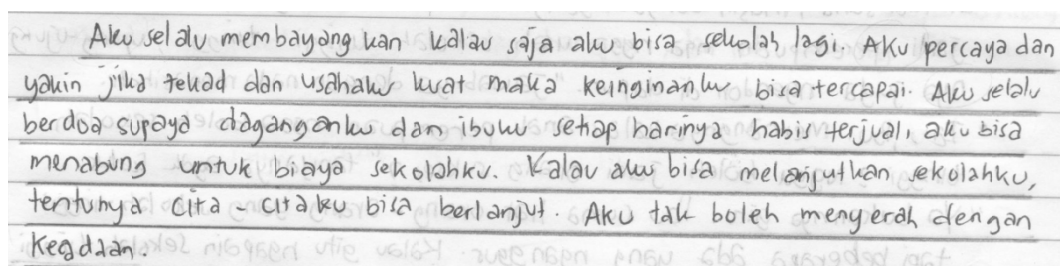 Aku selalu membayangkan kalau saja aku bisa sekolah lagi. Aku percaya dan
yakin jika tekad dan usahaku kuat maka keinginanku bisa tercapai. Aku selalu
berdoa supaya daganganku dan ibuku setiap harinya habis terjual, aku bisa
menabung untuk biaya sekolahku. Kalau aku bisa melanjutkan sekolahku,
tentunya cita-citaku bisa berlanjut. Aku tak boleh menyerah dengan
keadaan.